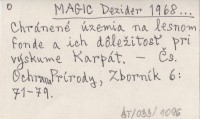 0
MAGIC Dezider 1968...
Chránené územia na lesnom
fonde a ich dôležitosť pri
výskume Karpát. – Čs.
Ochrana Prírody, Zborník 6:
71-79.
AT/033/1096